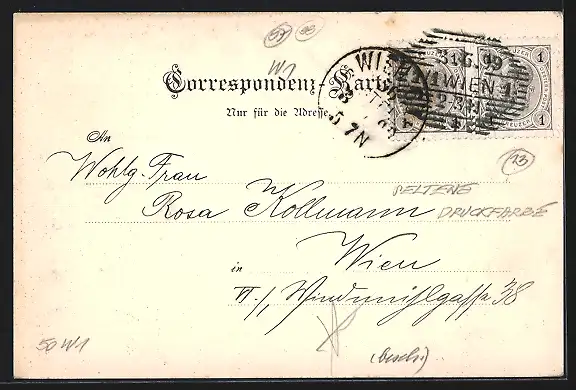 Correspondenz-Karte
Nur für die Adresse
An
Wohlg. Frau
Rosa Kollmann
SELTENE
DRUCKFARBE
Wien
in
VI/1, Windmühlgasse 38
WIEN
31.6.99
1/1 WIEN 1
5-7N
KREUZER
1
1
13
W1
50 W1
(besch.)